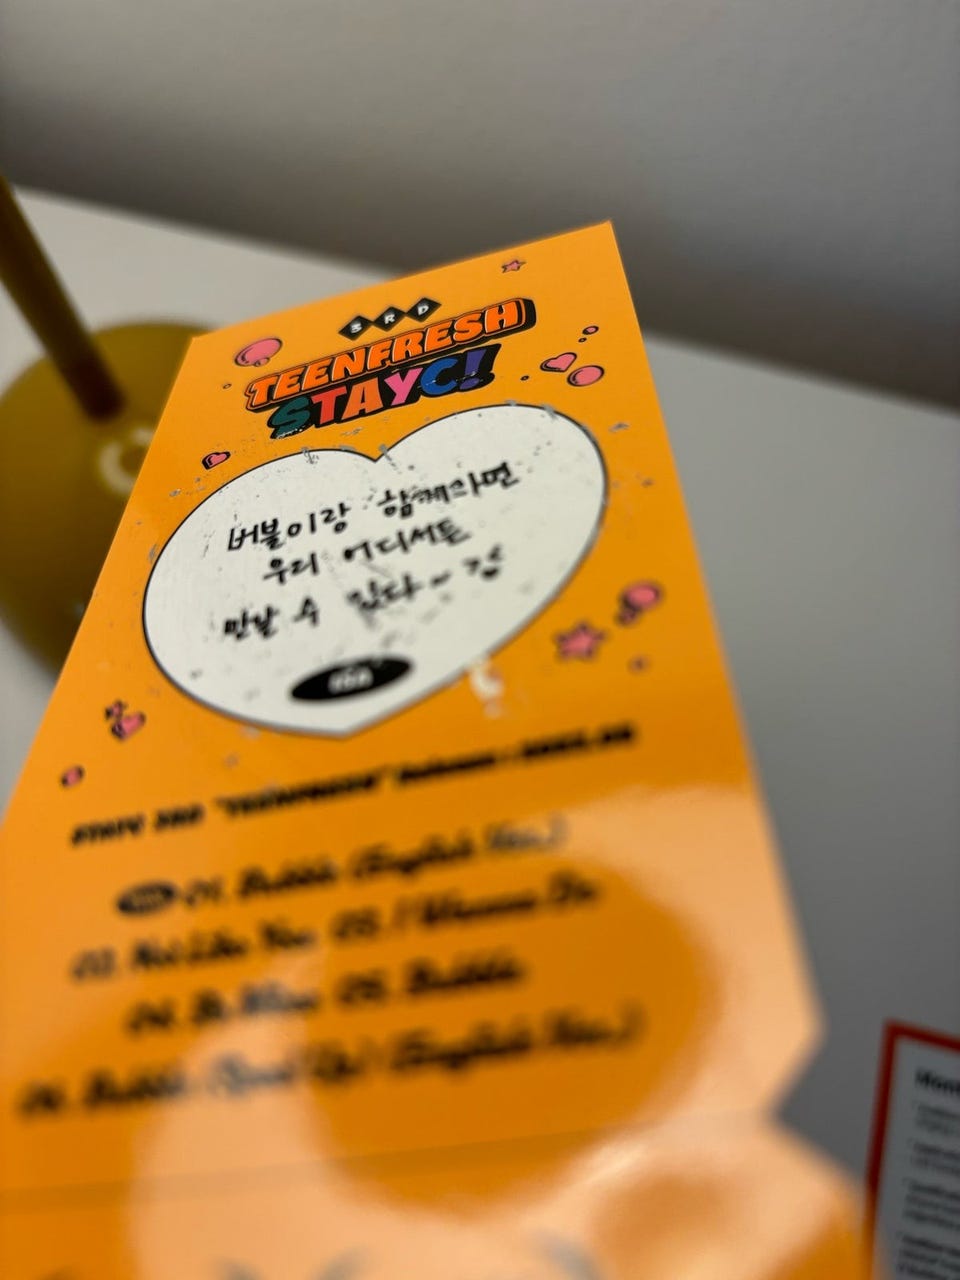 3RD
TEENFRESH
STAYC!
버블이랑 함께라면
우리 어디서든
만날 수 있다~
ISA
STAYC 3RD "TEENFRESH" Release :
01. Bubble (English Ver.)
02. Not Like You 03. I Wanna Do
04. Be Mine 05. Bubble
06. Bubble (Sped Up) (English Ver.)